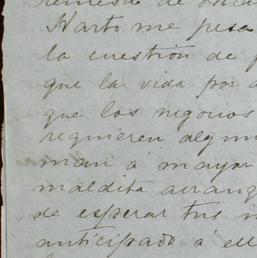 remesa de
Harto me pesa
la cuestión de
que la vida por
que los negocios
requieren algun
man a mayor
maldita arranq
de esperar tus
anticipado á ell